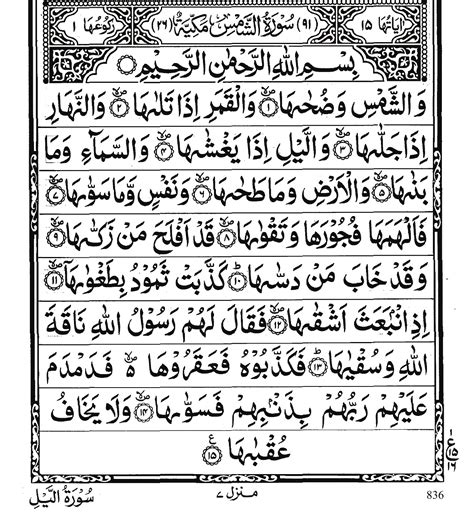 اٰیَاتُهَا ۱۵ (۹۱) سُوْرَةُ الشَّمْسِ مَكِّیَّةٌ (۲۶) رُكُوْعُهَا ۱
بِسْمِ اللهِ الرَّحْمٰنِ الرَّحِیْمِ
وَالشَّمْسِ وَضُحٰىهَا ۱ وَالْقَمَرِ اِذَا تَلٰىهَا ۲ وَالنَّهَارِ
اِذَا جَلّٰىهَا ۳ وَالَّیْلِ اِذَا یَغْشٰىهَا ۴ وَالسَّمَآءِ وَمَا
بَنٰىهَا ۵ وَالْاَرْضِ وَمَا طَحٰىهَا ۶ وَنَفْسٍ وَّمَا سَوّٰىهَا ۷
فَاَلْهَمَهَا فُجُوْرَهَا وَتَقْوٰىهَا ۸ قَدْ اَفْلَحَ مَنْ زَكّٰىهَا ۹
وَقَدْ خَابَ مَنْ دَسّٰىهَا ۱۰ كَذَّبَتْ ثَمُوْدُ بِطَغْوٰىهَاۤ ۱۱
اِذِ انْۢبَعَثَ اَشْقٰىهَا ۱۲ فَقَالَ لَهُمْ رَسُوْلُ اللهِ نَاقَةَ
اللهِ وَسُقْیٰهَا ۱۳ فَكَذَّبُوْهُ فَعَقَرُوْهَا ۵ فَدَمْدَمَ
عَلَیْهِمْ رَبُّهُمْ بِذَنْۢبِهِمْ فَسَوّٰىهَا ۱۴ وَلَا یَخَافُ
عُقْبٰهَا ۱۵
ع ۱ ۱۵ ۱۶
سُوْرَةُ الَّیْلِ منزل ۷ 836